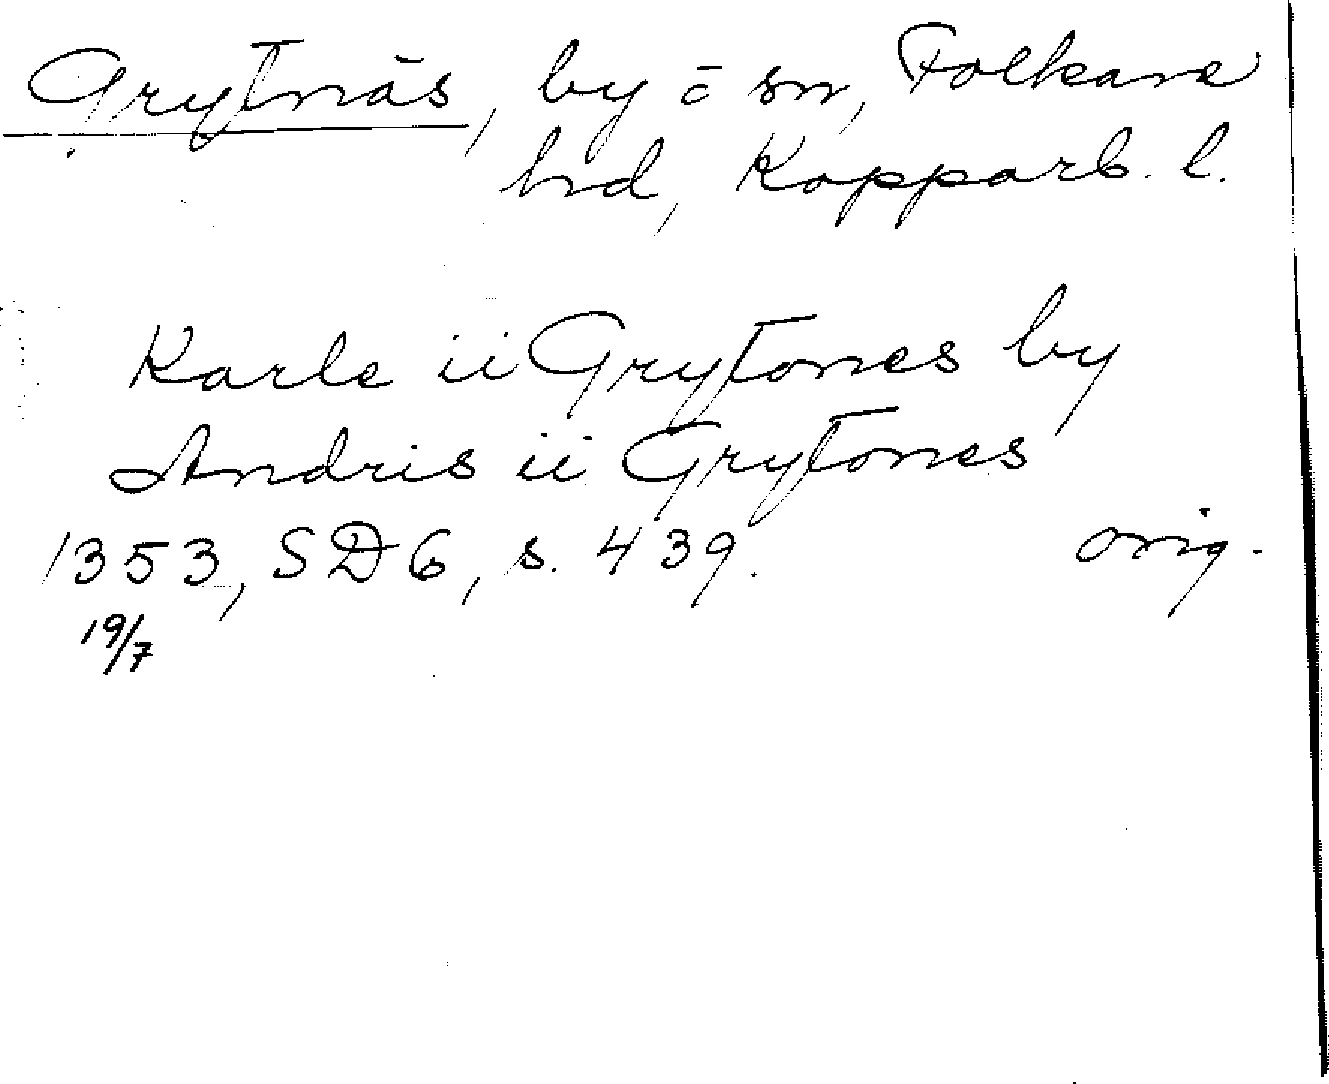 Grytnäs, by o sn, Folkare
hd, Kopparb. l.
Karle ii Grytones by
Andris ii Grytones
1353, SD 6, s. 439. orig.
19/7